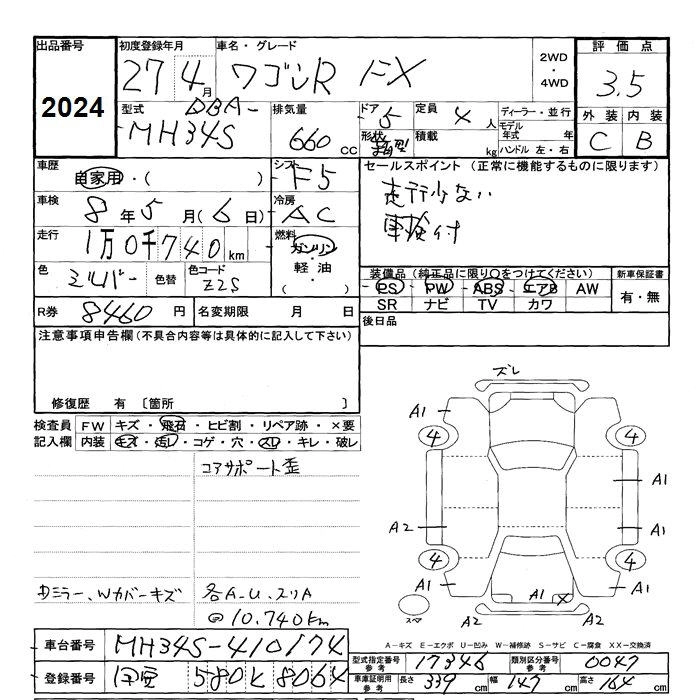 出品番号 初度登録年月 車名・グレード 評価点
2024 27 4月 ワゴンR FX 2WD・4WD 3.5
型式 DBA-MH34S 排気量 660 cc ドア 5 定員 4 人 ディーラー・並行 外装 内装
形状 箱型 積載 kg モデル年式 年 ハンドル 左・右 C B
車歴 自家用・( ) シフト F5 セールスポイント (正常に機能するものに限ります)
車検 8年5月(6日) 冷房 AC 走行少ない
走行 1万0千740km 燃料 ガソリン・軽油・( ) 車検付
色 シルバー 色替 色コード Z2S 装備品 (純正品に限り○をつけてください) 新車保証書
PS PW ABS エアB AW 有・無
R券 8460 円 名変期限 月 日 SR ナビ TV カワ
後日品
注意事項申告欄(不具合内容等は具体的に記入して下さい)
修復歴 有 〔箇所 〕
検査員 FW キズ・飛石・ヒビ割・リペア跡・×要
記入欄 内装 キズ・汚レ・コゲ・穴・スレ・キレ・破レ
コアサポート歪
ズレ
A1
4 4
A1
A2 A1
4 4
A1 A1 × A1
A2 A2
ミラー、Wカバーキズ 各A-U、スリA
@10,740km
A－キズ E－エクボ U－凹み W－補修跡 S－サビ C－腐食 XX－交換済
車台番号 MH34S-410174
型式指定番号 参考 17346 類別区分番号 参考 0047
登録番号 580 8064
車庫証明用 参考 長さ 339 cm 幅 147 cm 高さ 164 cm